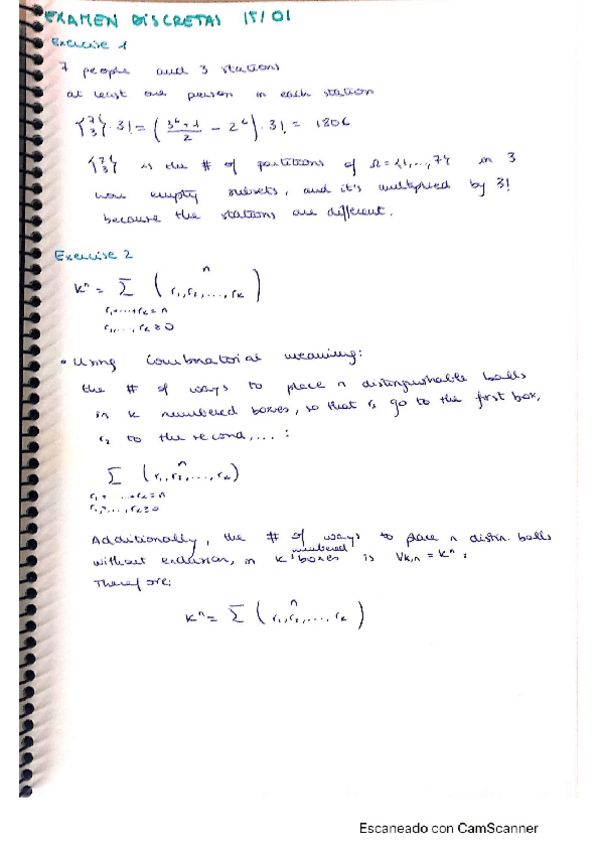 EXAMEN DISCRETAS 15/01
Exercise 1
7 people and 3 stations
at least one person in each station
{7 3} · 3! = (3⁶+1 / 2 − 2⁶) · 3! = 1806
{7 3} is the # of partitions of Ω = {1,...,7} in 3
non empty subsets, and it's multiplied by 3!
because the stations are different.
Exercise 2
kⁿ = Σ ( n r₁, r₂, ..., rₖ )
r₁+...+rₖ = n
r₁,..., rₖ ≥ 0
• Using combinatorial meaning:
the # of ways to place n distinguishable balls
in k numbered boxes, so that r₁ go to the first box,
r₂ to the second,... :
Σ ( n r₁, r₂, ..., rₖ )
r₁+ ...+rₖ = n
r₁,..., rₖ ≥ 0
Additionally, the # of ways to place n distin. balls
without exclusion, in k numbered boxes is Vk,n = kⁿ.
Therefore:
kⁿ = Σ ( n r₁, r₂, ..., rₖ )
Escaneado con CamScanner